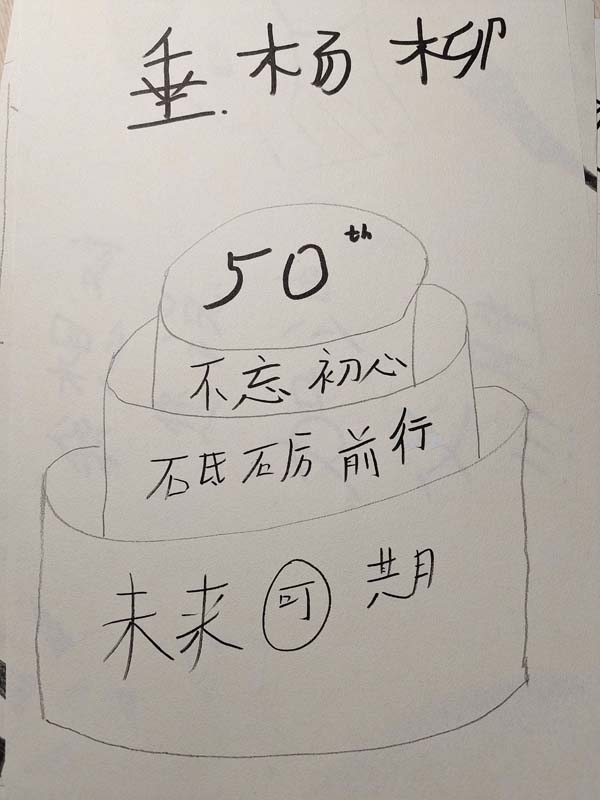 垂杨柳
50th
不忘初心
砥砺前行
未来可期